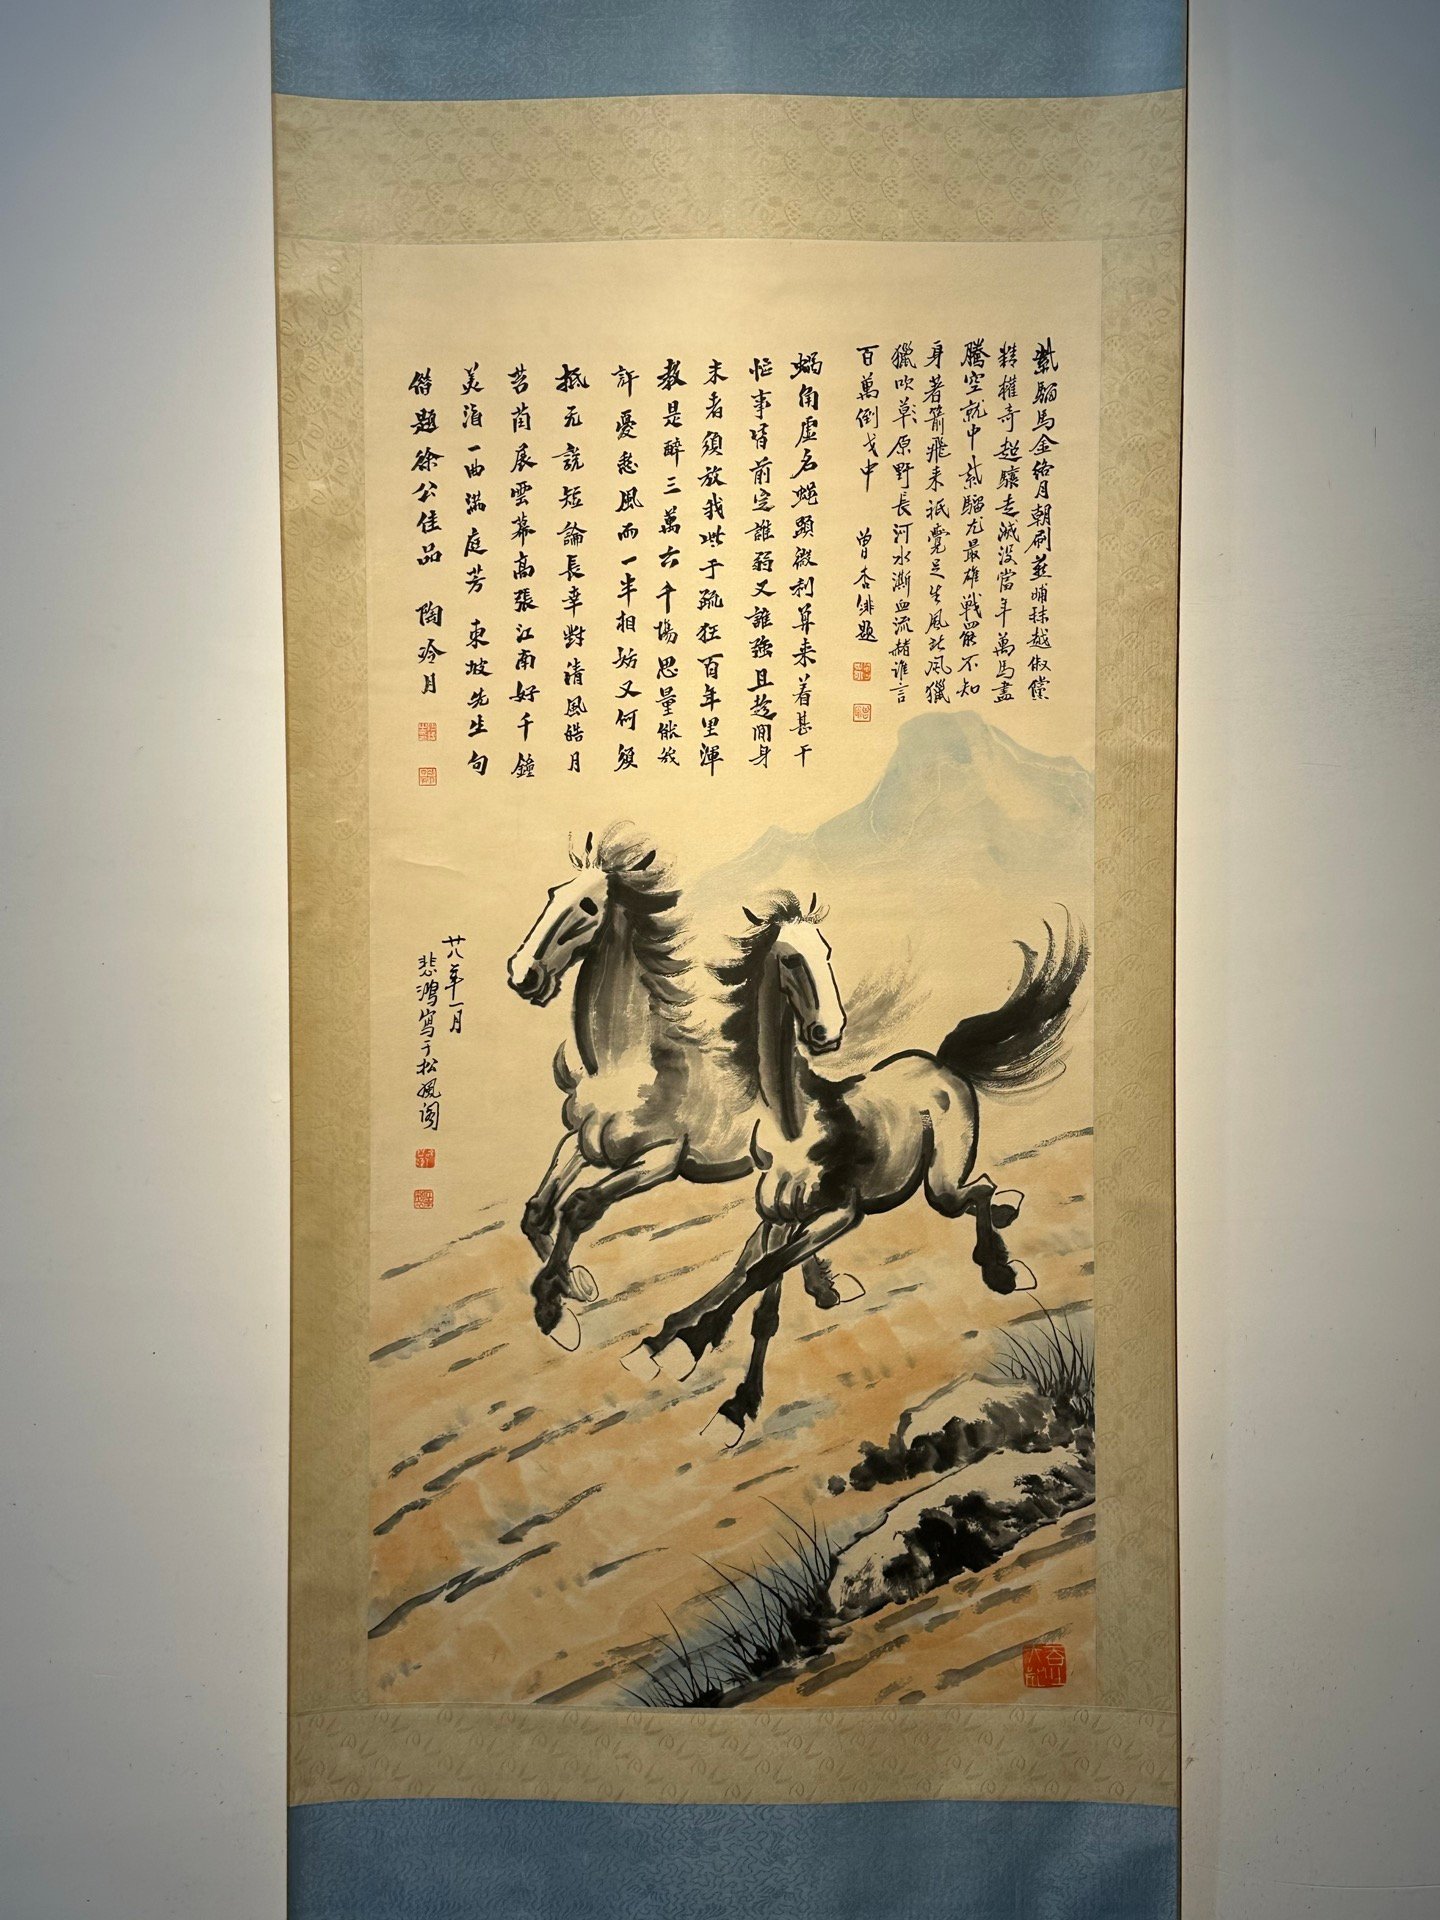 紫騮馬金絡月朝刷燕晡秣越俶儻
精權奇超驤走滅沒當年萬馬盡
騰空就中紫騮尤最雄戰罷不知
身著箭飛來祇覺足生風北風獵
獵吹草原野長河水漸血流赭誰言
百萬倒戈中 曾杏緋題
蝸角虛名蠅頭微利算來著甚干
忙事皆前定誰弱又誰強且趁閒身
未老須放我些子疏狂百年里渾
教是醉三萬六千場思量能幾
許憂愁風雨一半相妨又何須
抵死說短論長幸對清風皓月
苔茵展雲幕高張江南好千鐘
美酒一曲滿庭芳 東坡先生句
借題徐公佳品 陶冷月
廿八年一月
悲鴻寫于松風閣